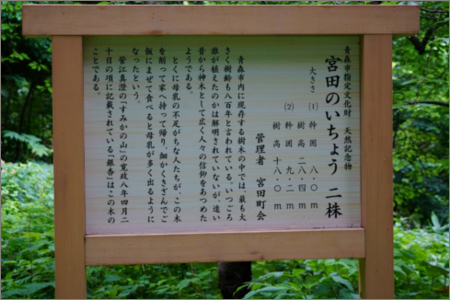 青森市指定文化財 天然記念物
宮田のいちょう 二株
大きさ (1) 幹囲 八.〇m
樹高 二八.四m
(2) 幹囲 九.二m
樹高 十八.〇m
管理者 宮田町会
青森市内に現存する樹木の中では、最も大
きく樹齢も八百年と言われている。いつごろ
誰が植えたのかは解明されていないが、遠い
昔から神木として広く人々の信仰をあつめた
ようである。
とくに母乳の不足がちな人たちが、この木
を削って家へ持って帰り、細かくきざんでご
飯にまぜて食べると母乳が多く出るように
なったという。
菅江真澄の「すみかの山」の寛政八年四月二
十日の項に記載されている「銀杏」はこの木の
ことである。